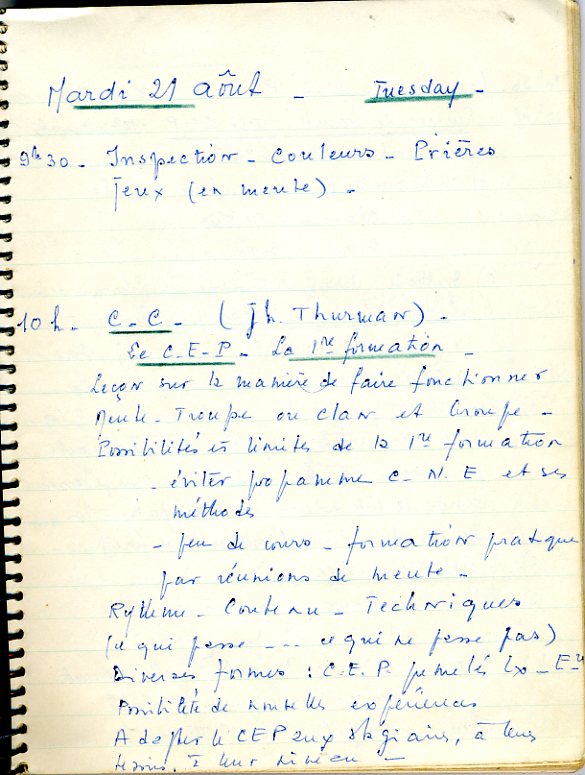 Mardi 21 août - Tuesday -
9h30 - Inspection - Couleurs - Prières
Jeux (en meute) -
10h - C-C - (Jh. Thurman) -
Le C-E-P - La 1re formation -
Leçon sur la manière de faire fonctionner
Meute - Troupe ou Clan et Groupe -
Possibilités et limites de la 1re formation
- éviter programme C-N-E et ses
méthodes
- peu de cours - formation pratique
par réunions de meute -
Rythme - Contenu - Techniques
(ce qui passe --- ce qui ne passe pas)
Diverses formes : C.E.P. jumelés
Possibilité de nouvelles expériences
Adapter le CEP aux stagiaires, à leurs
besoins, à leur niveau -